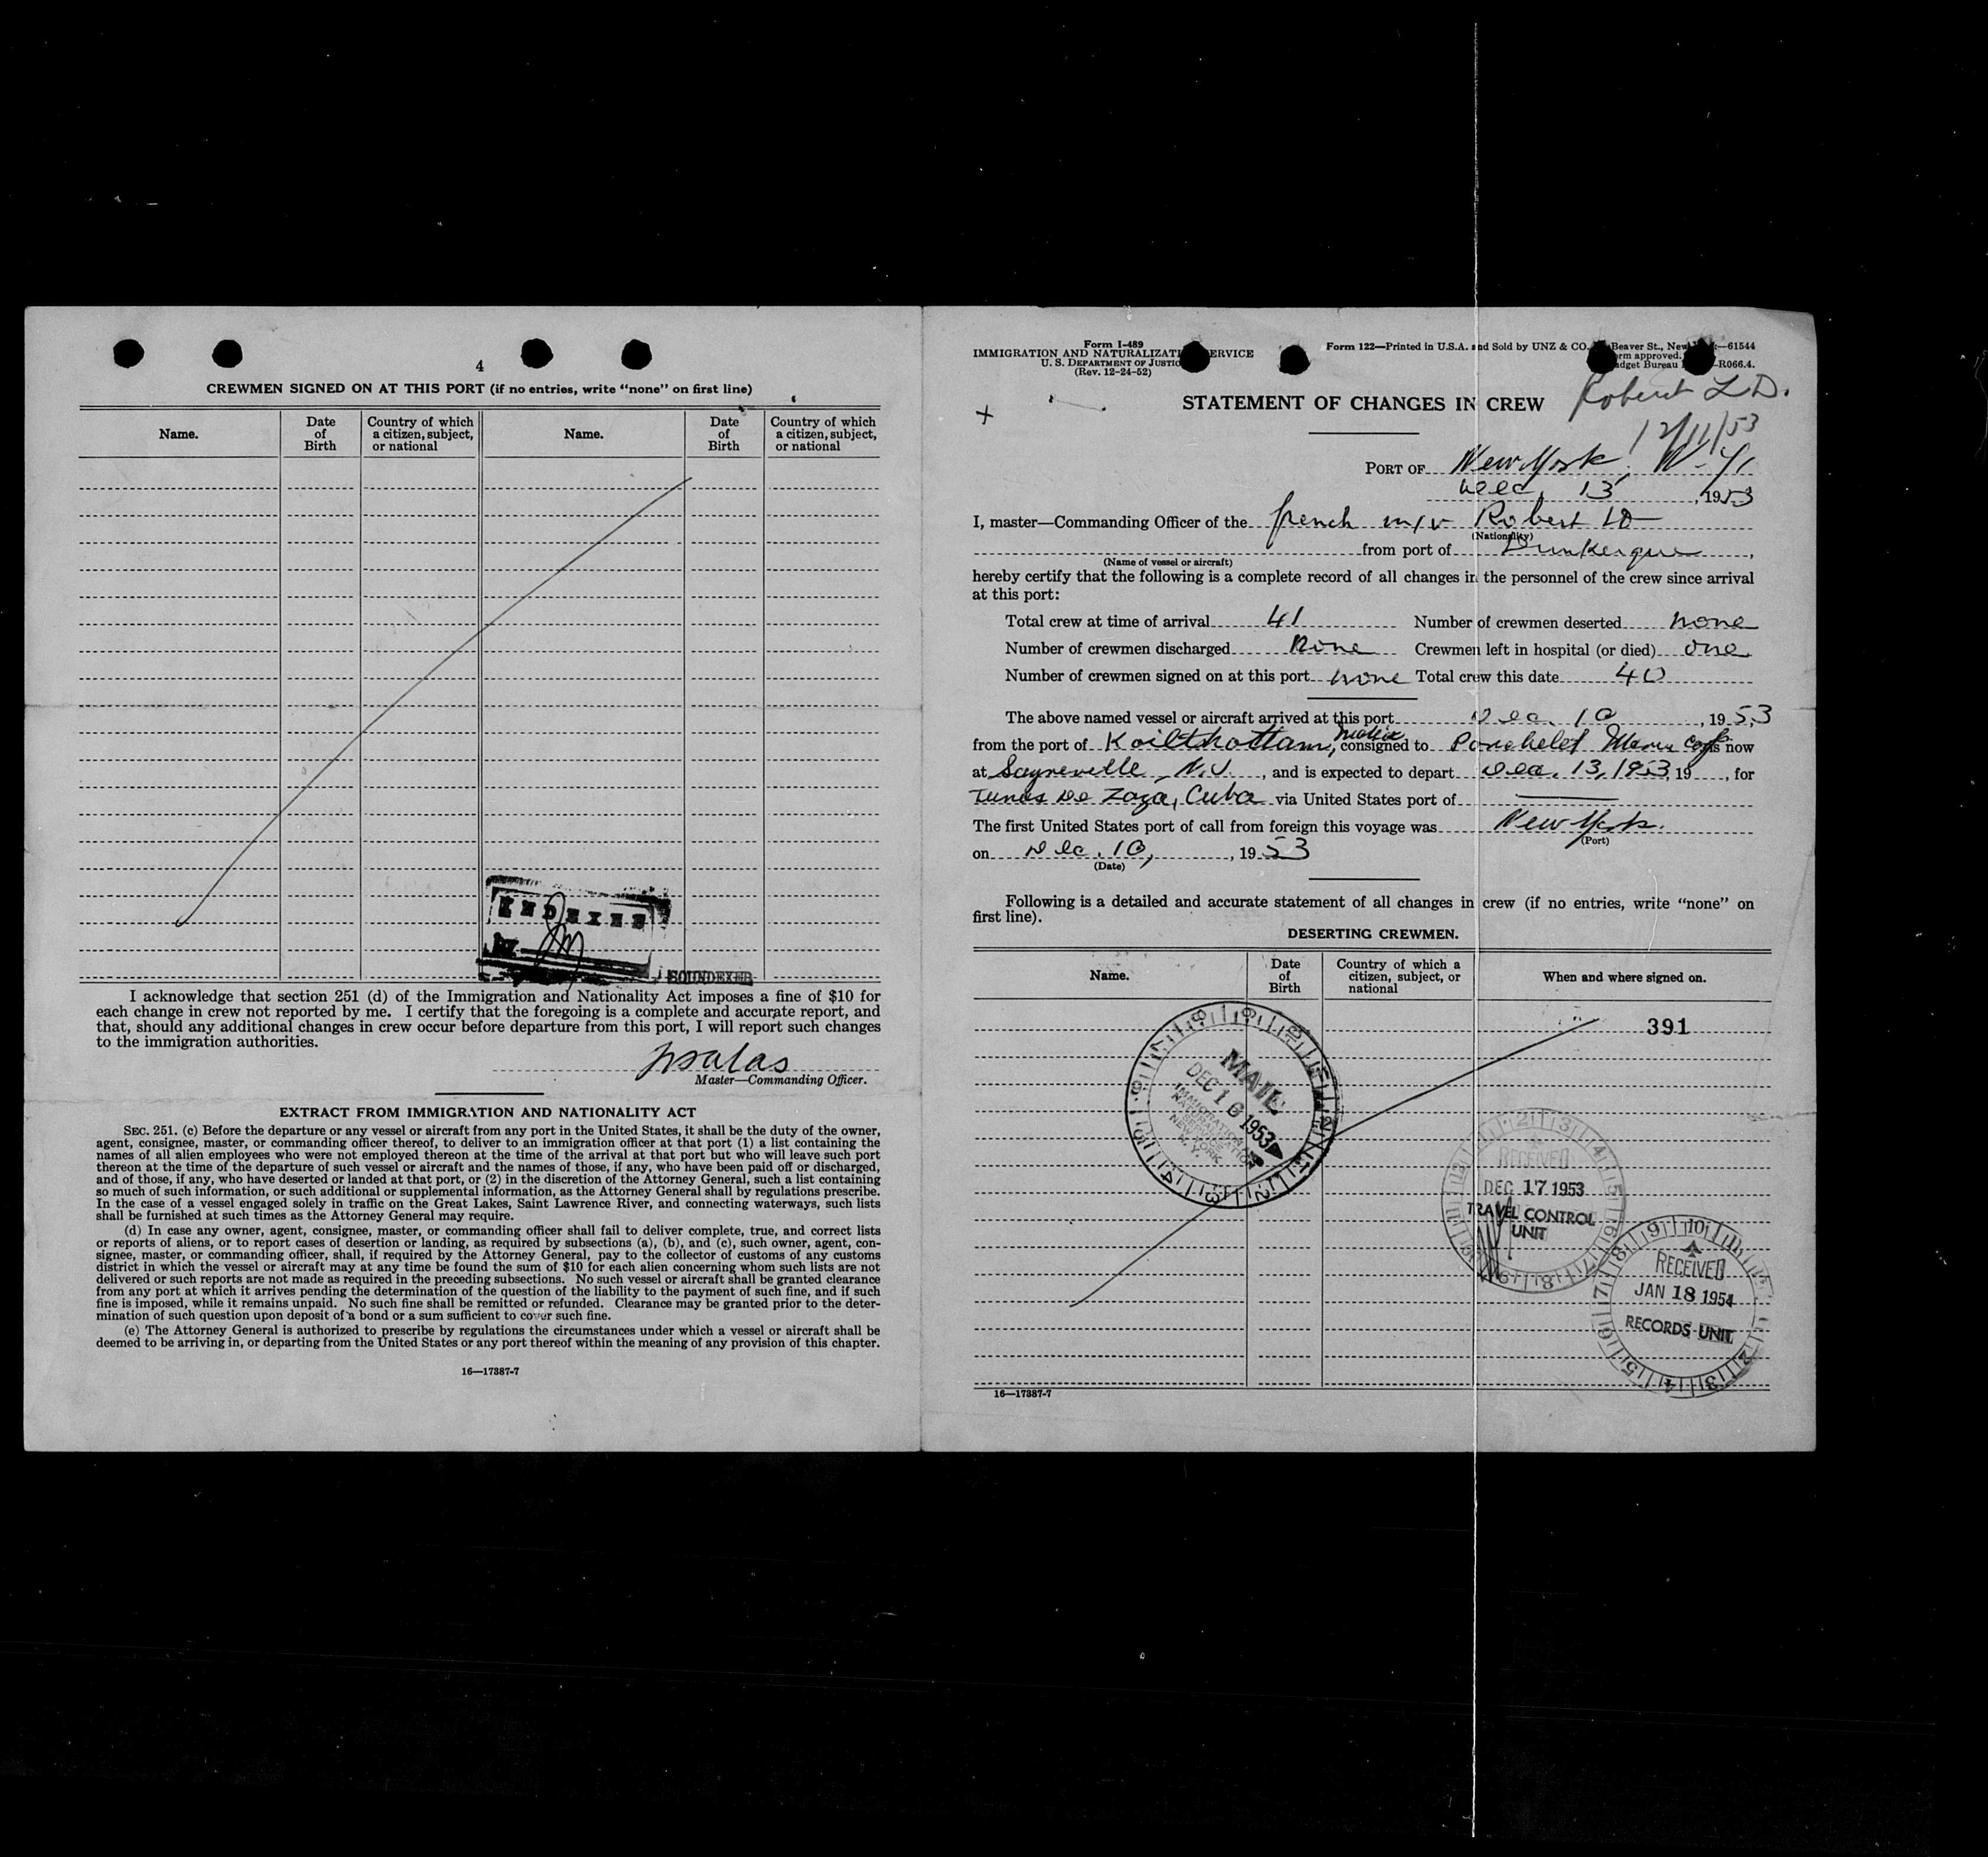 4
CREWMEN SIGNED ON AT THIS PORT (if no entries, write “none” on first line)
Name. Date of Birth Country of which a citizen, subject, or national Name. Date of Birth Country of which a citizen, subject, or national
INDEXED
SOUNDEXED
I acknowledge that section 251 (d) of the Immigration and Nationality Act imposes a fine of $10 for
each change in crew not reported by me. I certify that the foregoing is a complete and accurate report, and
that, should any additional changes in crew occur before departure from this port, I will report such changes
to the immigration authorities.
Master—Commanding Officer.
EXTRACT FROM IMMIGRATION AND NATIONALITY ACT
SEC. 251. (c) Before the departure or any vessel or aircraft from any port in the United States, it shall be the duty of the owner,
agent, consignee, master, or commanding officer thereof, to deliver to an immigration officer at that port (1) a list containing the
names of all alien employees who were not employed thereon at the time of the arrival at that port but who will leave such port
thereon at the time of the departure of such vessel or aircraft and the names of those, if any, who have been paid off or discharged,
and of those, if any, who have deserted or landed at that port, or (2) in the discretion of the Attorney General, such a list containing
so much of such information, or such additional or supplemental information, as the Attorney General shall by regulations prescribe.
In the case of a vessel engaged solely in traffic on the Great Lakes, Saint Lawrence River, and connecting waterways, such lists
shall be furnished at such times as the Attorney General may require.
(d) In case any owner, agent, consignee, master, or commanding officer shall fail to deliver complete, true, and correct lists
or reports of aliens, or to report cases of desertion or landing, as required by subsections (a), (b), and (c), such owner, agent, con-
signee, master, or commanding officer, shall, if required by the Attorney General, pay to the collector of customs of any customs
district in which the vessel or aircraft may at any time be found the sum of $10 for each alien concerning whom such lists are not
delivered or such reports are not made as required in the preceding subsections. No such vessel or aircraft shall be granted clearance
from any port at which it arrives pending the determination of the question of the liability to the payment of such fine, and if such
fine is imposed, while it remains unpaid. No such fine shall be remitted or refunded. Clearance may be granted prior to the deter-
mination of such question upon deposit of a bond or a sum sufficient to cover such fine.
(e) The Attorney General is authorized to prescribe by regulations the circumstances under which a vessel or aircraft shall be
deemed to be arriving in, or departing from the United States or any port thereof within the meaning of any provision of this chapter.
16—17387-7
Form I-489
IMMIGRATION AND NATURALIZATI ERVICE
U. S. DEPARTMENT OF JUSTIC
(Rev. 12-24-52)
Form 122—Printed in U.S.A. and Sold by UNZ & CO. Beaver St., New —61544
orm approved.
dget Bureau —R066.4.
Robert L D.
12/11/53
STATEMENT OF CHANGES IN CREW
PORT OF New York, N. Y.
Dec, 13, 1953
I, master—Commanding Officer of the french m/v Robert LD
(Nationality)
from port of Dunkerque,
(Name of vessel or aircraft)
hereby certify that the following is a complete record of all changes in the personnel of the crew since arrival
at this port:
Total crew at time of arrival 41 Number of crewmen deserted none
Number of crewmen discharged None Crewmen left in hospital (or died) one
Number of crewmen signed on at this port none Total crew this date 40
The above named vessel or aircraft arrived at this port Dec. 10, 1953
from the port of Koilthottam, consigned to now
at Sayreville, N.J., and is expected to depart Dec. 13, 1953, 19 , for
Tunas De Zaza, Cuba via United States port of
The first United States port of call from foreign this voyage was New York.
(Port)
on Dec. 10, , 1953
(Date)
Following is a detailed and accurate statement of all changes in crew (if no entries, write “none” on
first line).
DESERTING CREWMEN.
Name. Date of Birth Country of which a citizen, subject, or national When and where signed on.
391
MAIL
DEC 16 1953
IMMIGRATION &
NATURALIZATION
SERVICE
NEW YORK
N. Y.
RECEIVED
DEC 17 1953
TRAVEL CONTROL
UNIT
RECEIVED
JAN 18 1954
RECORDS UNIT
16—17387-7